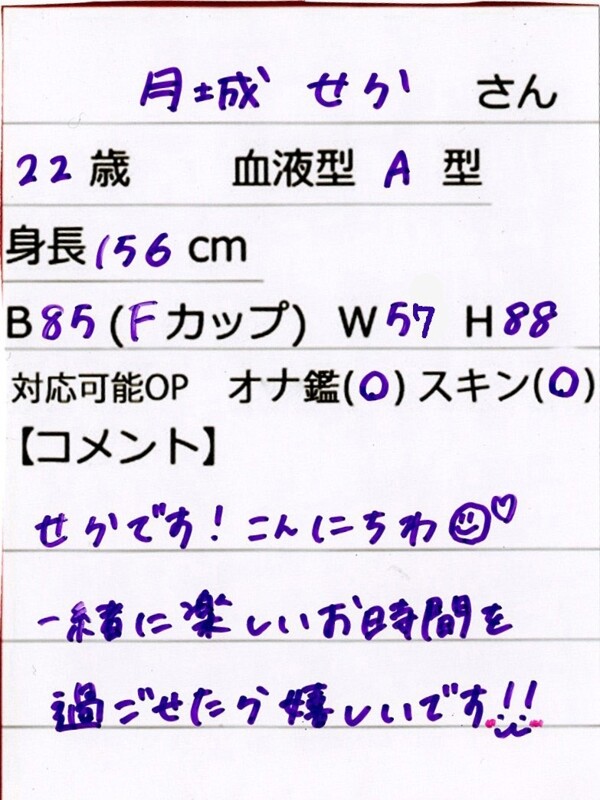 月城 せか さん
22歳 血液型 A 型
身長156cm
B85(Fカップ) W57 H88
対応可能OP オナ鑑(O)スキン(O)
【コメント】
せかです!こんにちわ☺♡
一緒に楽しいお時間を
過ごせたら嬉しいです!!